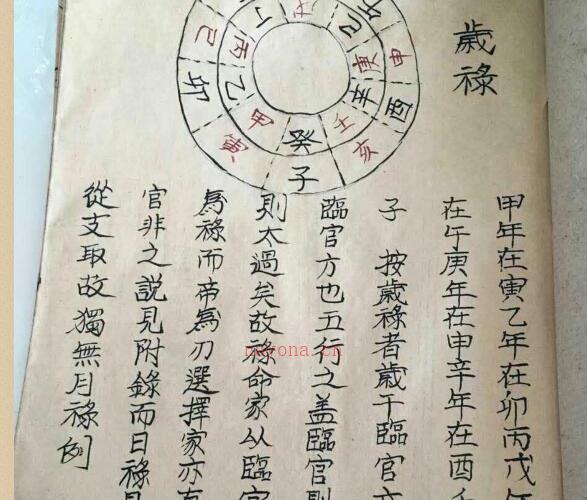 歲祿
甲年在寅乙年在卯丙戊年
在午庚年在申辛年在酉
子 按歲祿者歲干臨官方
臨官方也五行之盖臨官則
則太過矣故祿命家从臨官
為祿而帝為刃選擇家亦
官非之說見附錄而日祿
從支取故獨無月祿例
巳
丙
乙
卯
甲
寅
癸
子
壬
亥
辛
酉
庚
申
己
午
nayona.cn